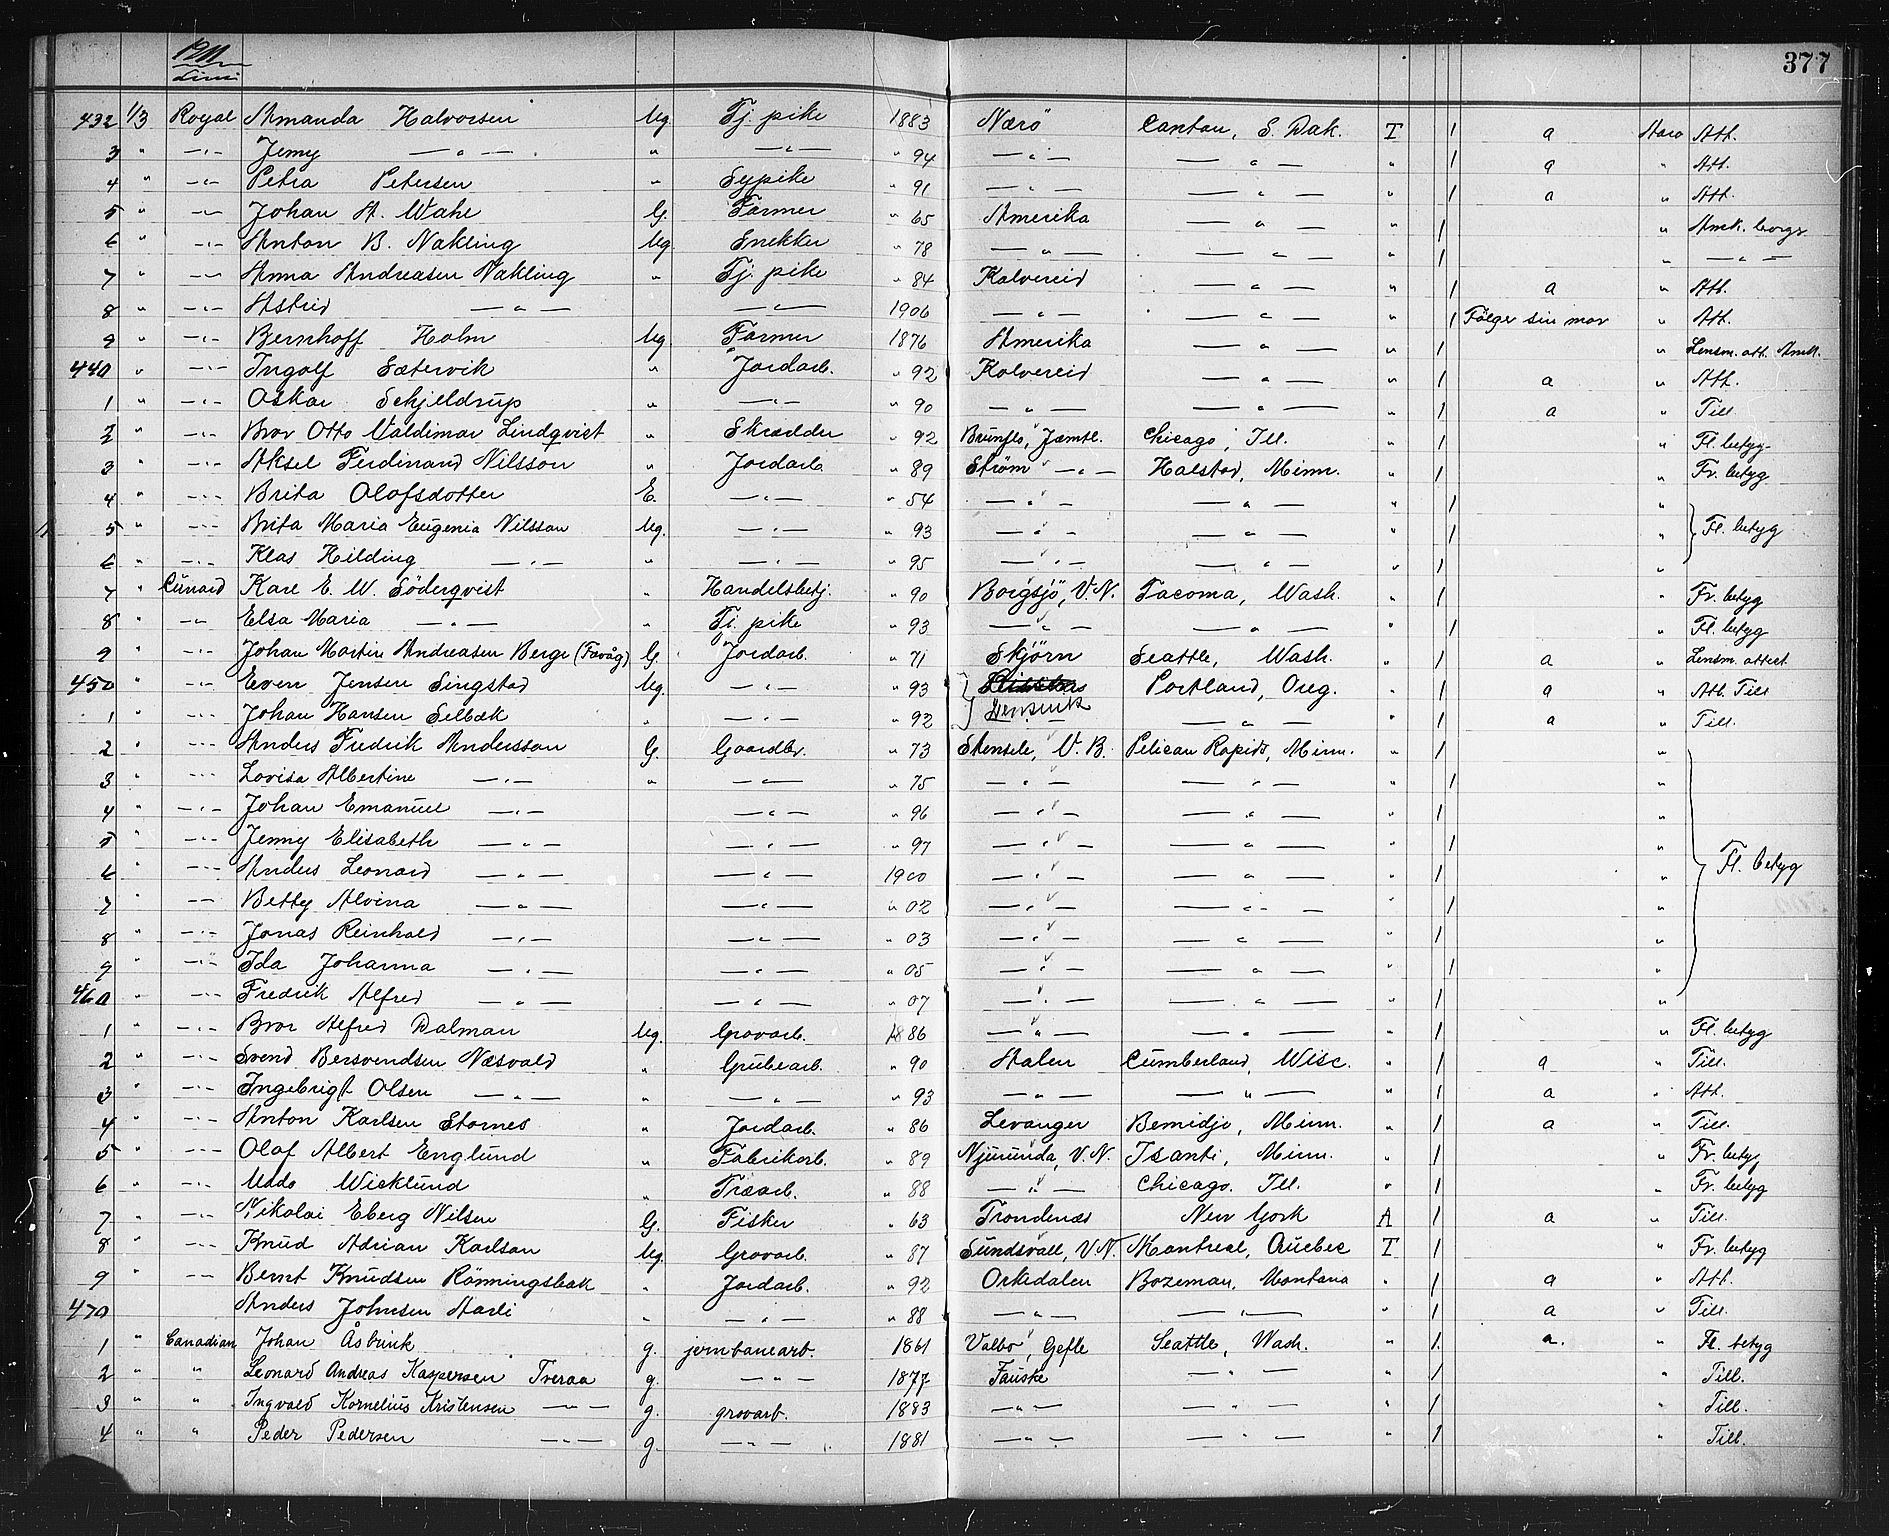 1911 377
Linie
432 1/3 Royal Amanda Halvorsen Ug. Tj. pike 1883 Nærö Canton, S. Dak. T 1 a Aaro Att.
3 " —"— Jenny —"— " —"— " 94 —"— —"— " 1 a " Att.
4 " —"— Petra Petersen " Sypike " 91 —"— —"— " 1 a " Att.
5 " —"— Johan A. Wahl G. Farmer " 65 Amerika —"— " 1 " Amk. borgr
6 " —"— Anton B. Nakling Ug. Snekker " 78 —"— —"— " 1 " —"—
7 " —"— Anna Andreasen Nakling " Tj. pike " 84 Kolvereid —"— " 1 a " Att.
8 " —"— Astrid —"— —"— 1906 —"— —"— " 1 Fölger sin mor " Att.
9 " —"— Bernhoff Holm Ug. Farmer 1876 Amerika —"— " 1 " Lensm. att. Amk.
440 " —"— Ingolf Sætervik " Jordarb. " 92 Kolvereid —"— " 1 a " Att.
1 " —"— Oskar Schjeldrup " —"— " 90 —"— —"— " 1 a " Till.
2 " —"— Bror Otto Valdimar Lindqvist " Skrædder " 92 Brunflo, Jæmtl. Chicago, Ill. " 1 " Fl. betyg
3 " —"— Aksel Ferdinand Nilsson " Jordarb. " 89 Strøm —"— Halstad, Minn. " 1 " Fr. betyg
4 " —"— Brita Olofsdotter E. —"— " 54 —"— —"— " 1 "
5 " —"— Brita Maria Eugenia Nilsson Ug. —"— " 93 —"— —"— " 1 " Fl. betyg
6 " —"— Klas Hilding —"— " —"— " 95 —"— —"— " 1 "
7 " Cunard Karl E. W. Söderqvist " Handelsbetj. " 90 Borgsjö, V.N. Tacoma, Wash. " 1 " Fr. betyg
8 " —"— Elsa Maria —"— " Tj. pike " 93 —"— —"— " 1 " Fl. betyg
9 " —"— Johan Martin Andreasen Berge (Favåg) G. Jordarb. " 71 Skjörn Seattle, Wash. " 1 a " Lensm. attest
450 " —"— Even Jensen Singstad Ug. —"— " 93 Portland, Oreg. " 1 a " Att. Till
1 " —"— Johan Hansen Selbæk " —"— " 92 —"— " 1 a " Till.
2 " —"— Anders Fredrik Andersson G. Gaardbr. " 73 Stensele, V.B. Pelican Rapids, Minn. " 1 "
3 " —"— Lovisa Albertine —"— " —"— " 75 —"— —"— " 1 "
4 " —"— Johan Emanuel —"— —"— " 96 —"— —"— " 1 "
5 " —"— Jenny Elisabeth —"— —"— " 97 —"— —"— " 1 "
6 " —"— Anders Leonard —"— —"— 1900 —"— —"— " 1 " Fl. betyg
7 " —"— Betty Alvina —"— —"— " 02 —"— —"— " 1 "
8 " —"— Jonas Reinhold —"— —"— " 03 —"— —"— " 1 "
9 " —"— Ida Johanna —"— —"— " 05 —"— —"— " 1 "
460 " —"— Fredrik Alfred —"— —"— " 07 —"— —"— " 1 "
1 " —"— Bror Alfred Dalman Ug. Grovarb. 1886 —"— —"— " 1 " Fl. betyg
2 " —"— Svend Bersvendsen Næsvald " Grubearb. " 90 Aalen Cumberland, Wisc. " 1 a " Till.
3 " —"— Ingebrigt Olsen —"— " —"— " 93 —"— —"— " 1 a " Att.
4 " —"— Anton Karlsen Stornes " Jordarb. " 86 Levanger Bemidji, Minn. " 1 a " Till.
5 " —"— Olof Albert Englund " Fabrikarb. " 89 Njurunda, V.N. Isanti, Minn. " 1 " Fr. betyg
6 " —"— Uddo Wicklund " Træarb. " 88 —"— Chicago, Ill. " 1 " Fr. betyg
7 " —"— Nikolai Eberg Nilsen G. Fisker " 63 Trondenæs New York A 1 a " Till.
8 " —"— Knud Adrian Karlson Ug. Grovarb. " 87 Sundsvall, V.N. Montreal, Quebec T 1 " Fr. betyg
9 " —"— Bernt Knudsen Rönningsbak " Jordarb. " 92 Orkedalen Bozeman, Montana " 1 a " Att.
470 Anders Johnsen Aarli " —"— " 88 —"— —"— " 1 a " Till.
1 " Canadian Johan Åsbrink g. jernbanearb. 1861 Valbo, Gefle Seattle, Wash. " 1. a. " Fl. betyg
2 " " Leonard Andreas Kaspersen Tveraa g. —"— 1877 Fauske —"— " 1 " Till.
3 " " Ingvald Kornelius Kristensen —"— g. grovarb. 1883 —"— —"— " 1 " Till.
4 " " Peder Pedersen —"— g. —"— 1881 —"— —"— " 1 " Till.